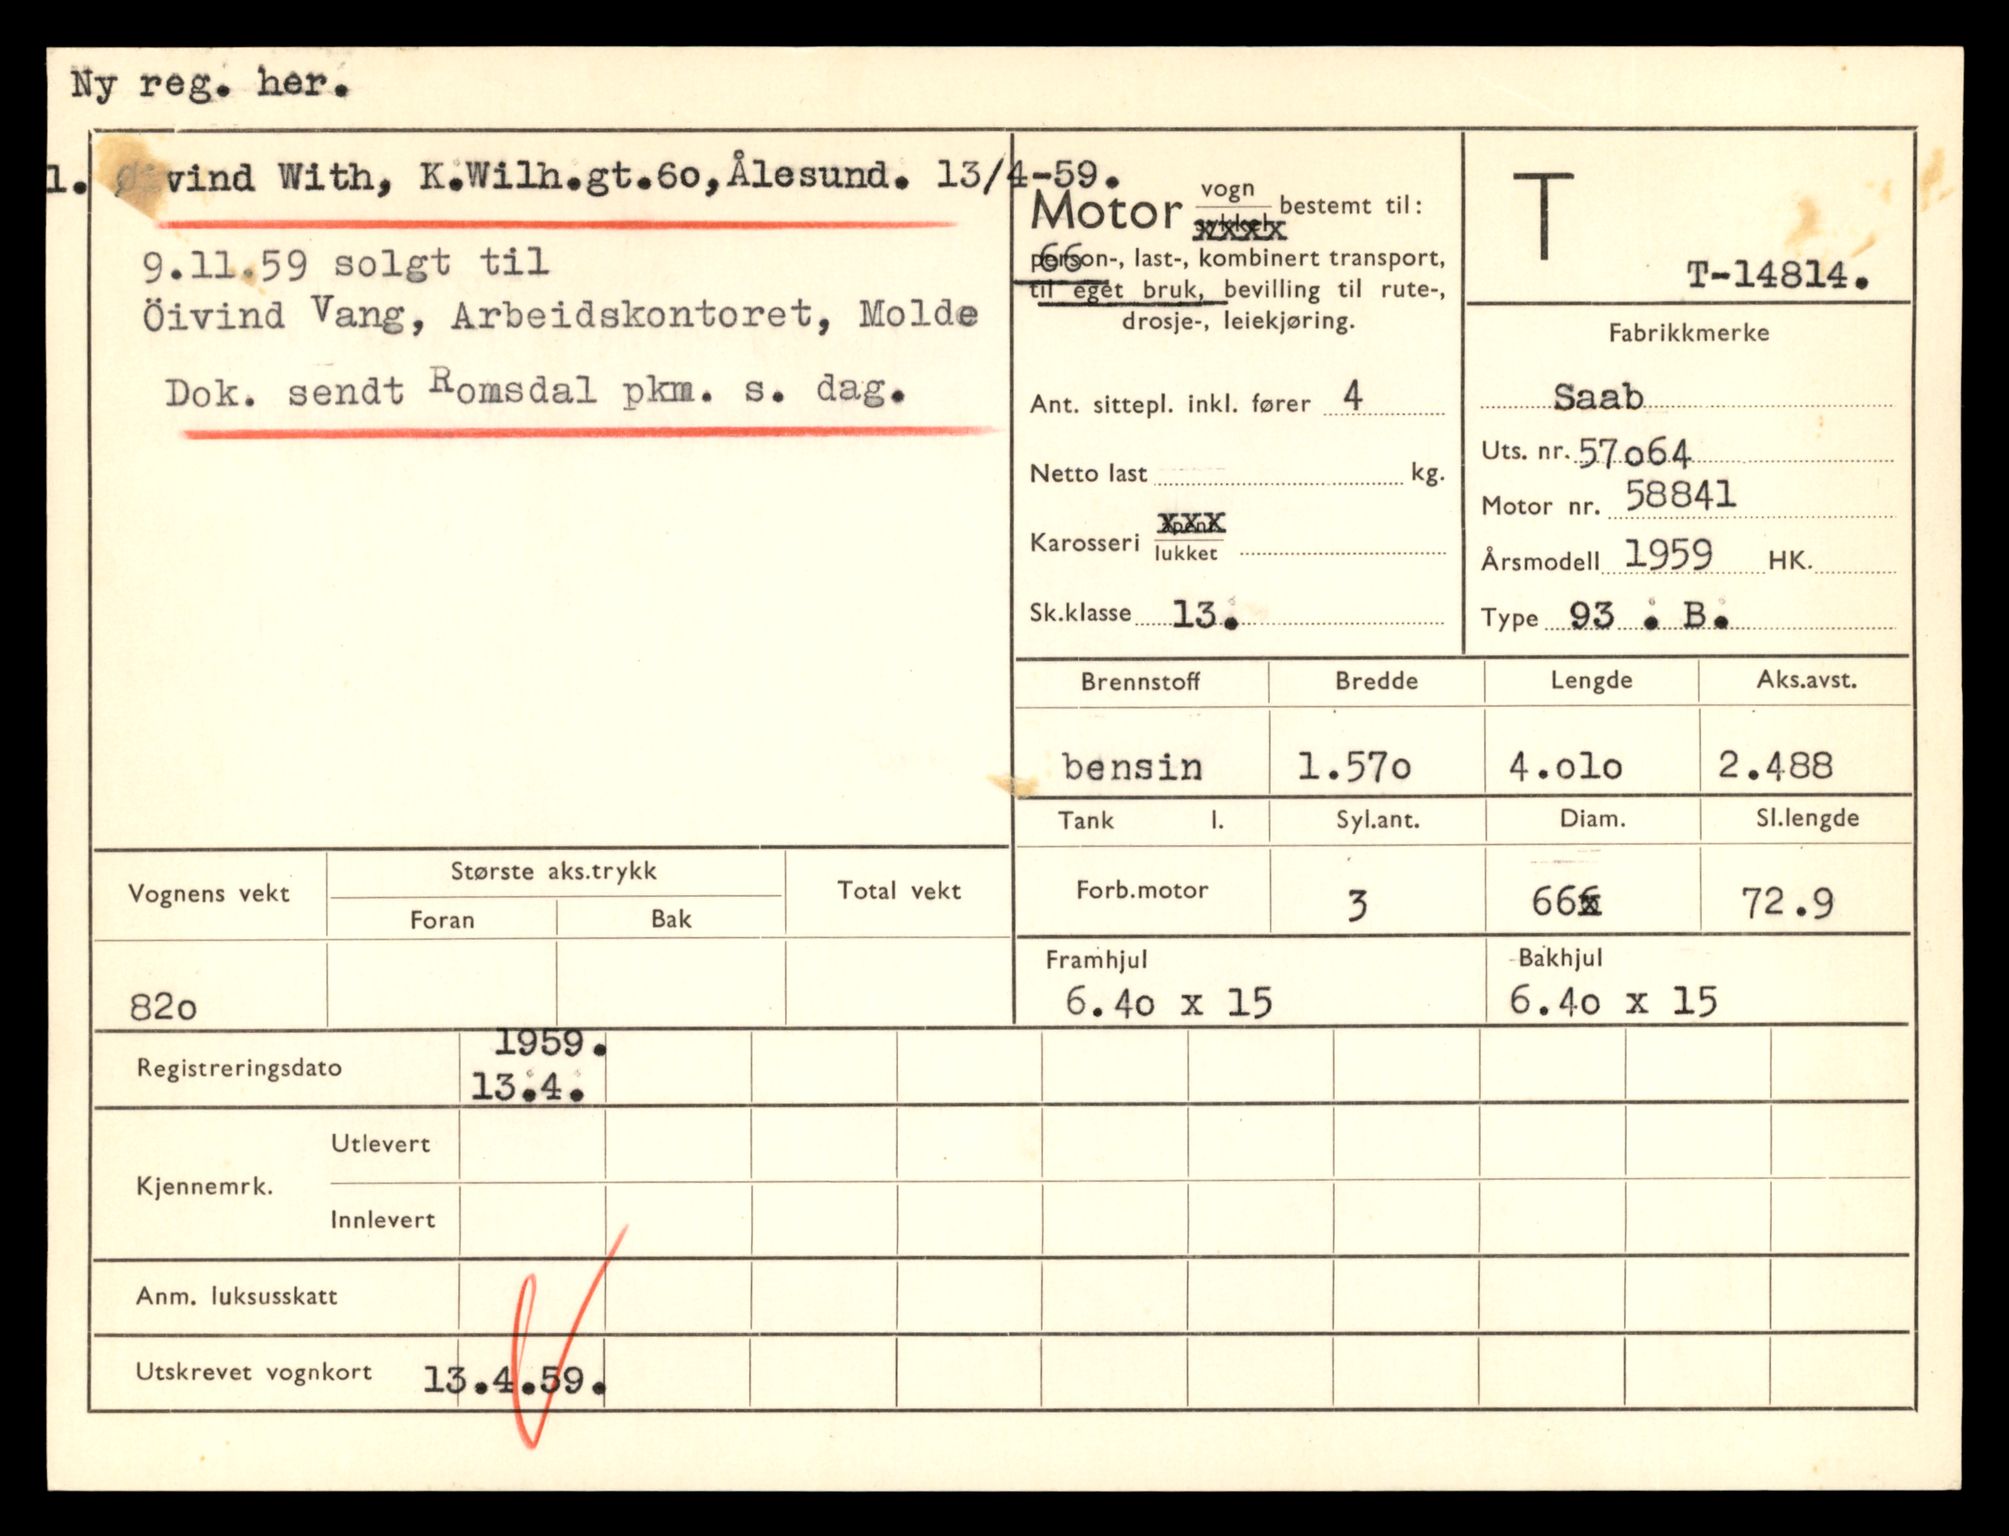 Ny reg. her.
1. Øivind With, K.Wilh.gt.6o,Ålesund. 13/4-59.
9.11.59 solgt til
Öivind Vang, Arbeidskontoret, Molde
Dok. sendt Romsdal pkm. s. dag.
Motor vogn bestemt til:
sykkel
xxxx
66
person-, last-, kombinert transport,
til eget bruk, bevilling til rute-,
drosje-, leiekjøring.
Ant. sittepl. inkl. fører 4
Netto last kg.
Karosseri åpent
xxx
lukket
Sk.klasse 13.
T
T-14814.
Fabrikkmerke
Saab
Uts. nr. 57o64
Motor nr. 58841
Årsmodell 1959 HK.
Type 93 . B.
Brennstoff Bredde Lengde Aks.avst.
bensin 1.57o 4.o1o 2.488
Tank l. Syl.ant. Diam. Sl.lengde
Forb.motor 3 66x 72.9
Framhjul Bakhjul
6.4o x 15 6.4o x 15
Vognens vekt Største aks.trykk Total vekt
Foran Bak
82o
Registreringsdato 1959.
13.4.
Kjennemrk. Utlevert
Innlevert
Anm. luksusskatt
Utskrevet vognkort 13.4.59.